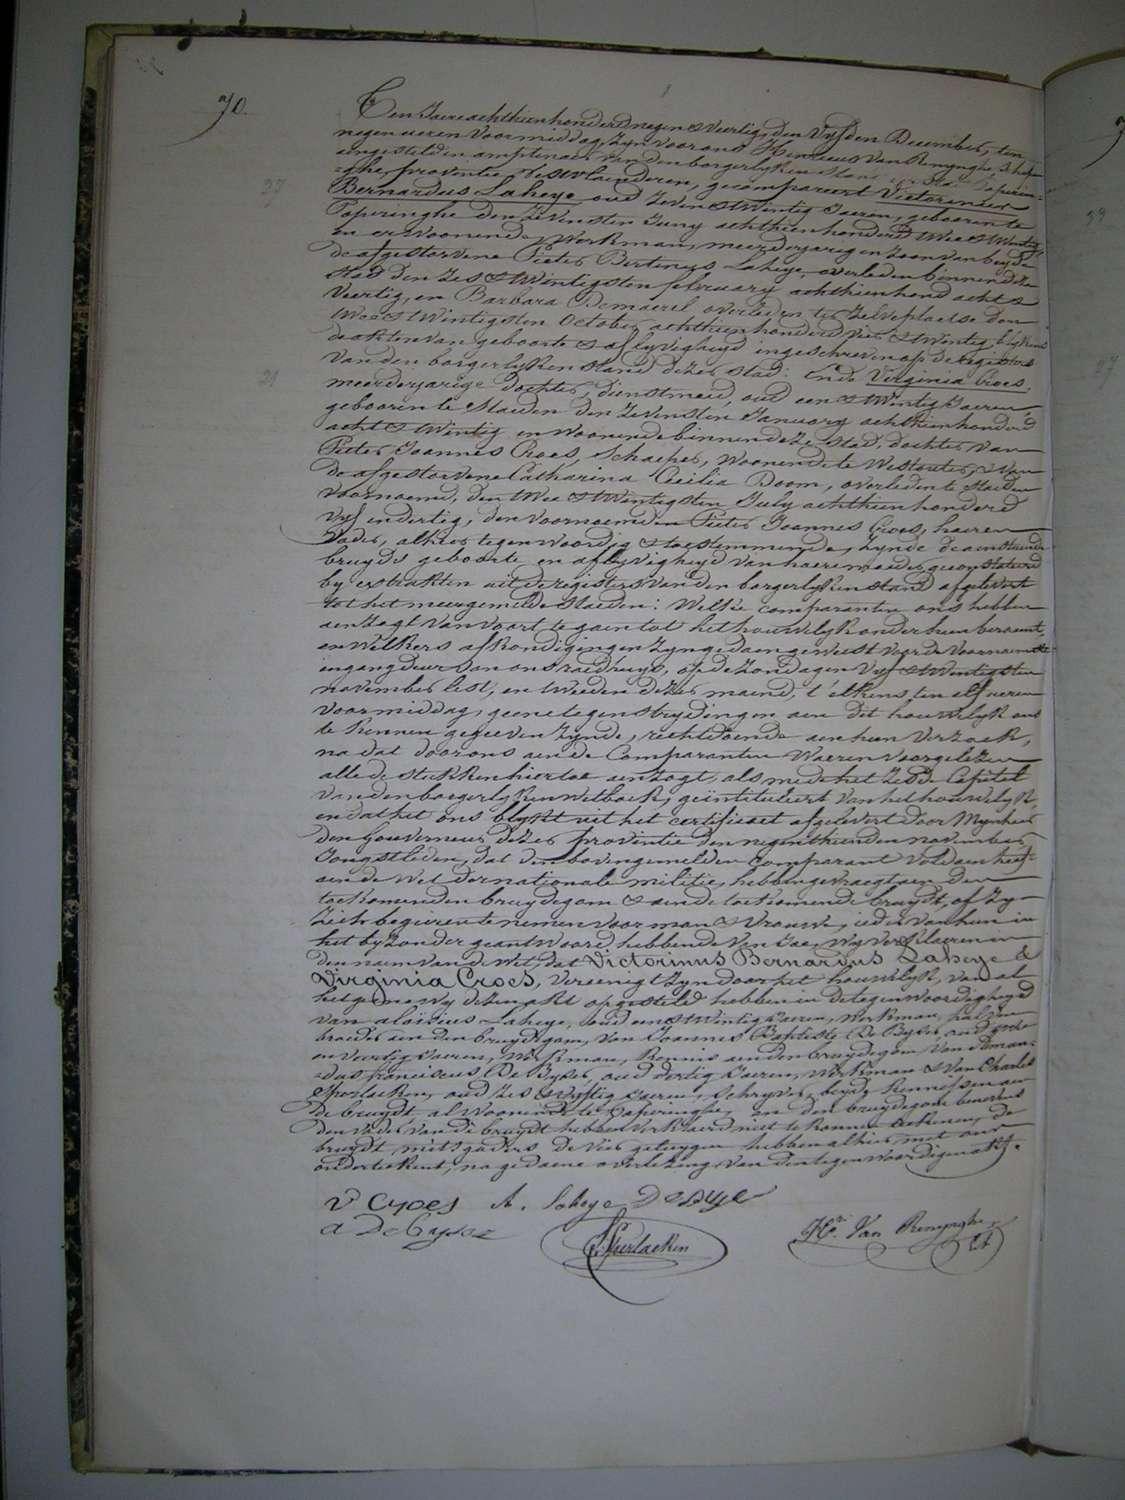 70.
Een Jaere achthien honderd negen & veertig, den Vyfden December, ten
negen ueren Voormiddag, Zyn voor ons Henricus Van Renynghe, Schepen
aengesteld en amptenaer van den borgerlyken Stand der Stad Poperin=
=ghe, provintie Westvlaenderen, gecompareert Victorinus
27
Bernardus Laheye oud Zeven & twintig Jaeren, geboren te
Poperinghe den Zevensten Juny achthien honderd twee & twintig
en er woonende, Werkman, meerderjarigen Zoon van beyde
de afgestorvene Pieter Bertinus Laheye, overleden binnen deze
Stad den Zes & twintigsten february achthien honderd acht &
Veertig, en Barbara Demaerel overleden ter Zelve plaetse den
twee & twintigsten October achthien honderd vier & twintig, blykens
de akten van geboorte & aflyvigheyd ingeschreven op de registers
van den borgerlyken stand dezer Stad: Ende Virginia Croes,
21
meerderjarige dochter, dienstmeid, oud een & twintig Jaeren,
geboren te Staeden den Zevensten January achthien honderd
acht & twintig en woonende binnen deze Stad, dochter van
Pieter Joannes Croes, Schaeper, woonende te Westouter, & van
de afgestorvene Catharina Cecilia Boom, overleden te Staeden
voornoemd, den twee & twintigsten July achthien honderd
vyf en dertig, den voornoemden Pieter Joannes Croes, haeren
Vader, alhier tegenwoordig & toestemmende, Zynde de aenstaende
bruyds geboorte en aflyvigheyd van haere moeder geconstateerd
by extrakten uit de registers van den borgerlyken stand afgelevert
tot het meergemelde Staeden: Welke comparanten ons hebben
aenzogt van voort te gaen tot het houwelyk onder hun beraemt,
en welkers afkondigingen Zyn gedaen geweest voor de Voornaemste
ingangdeur van ons raedhuys, op de Zondagen Vyf & twintigsten
november lest, en tweeden dezer maend, t'elkens ten elf ueren
voormiddag, geene tegenstrydingen aen dit houwelyk ons
te kennen gegeven Zynde, rechtdoende aen hun Verzoek,
na dat door ons aen de Comparanten Waeren Voorgelezen
alle de stukken hiertoe aenzogt, als mede het Zesde Capitel
van den borgerlyken Wetboek, geïntituleert Van het houwelyk,
en dat het ons blykt uit het certificaet afgelevert door Mynheer
den Gouverneur dezer provintie den negenthienden november
Jongstleden, dat den bovengemelden Comparant Voldaen heeft
aen de Wet der nationale militie, hebben gevraegt aen den
toekomenden bruydegom & aen de toekomende bruydt, of Zy
Zich begeeren te nemen voor man & Vrouwe, ieder van hun in
het byzonder geantwoord hebbende Van Jae, Wy verklaeren in
den naem van de Wet, dat Victorinus Bernardus Laheye &
Virginia Croes, Vereenigt Zyn door het houwelyk, van al
het gene wy dezen akt opgesteld hebben in de tegenwoordigheyd
van aloisius Laheye, oud een & twintig Jaeren, Werkman, half
broeder aen den bruydegom, van Joannes Baptiste De Byser, oud
en Veertig Jaeren, Werkman, Kennis aen den bruydegom, Van Aman=
=dus franciscus De Byser, oud dertig Jaeren, Werkman & van Charles
Sperlaeken, oud Zes & vyftig Jaeren, Schryver, beyde Kennissen aen
de bruydt, al Woonende te Poperinghe, en den bruydegom benevens
den vader van de bruydt hebben Verklaerd niet te konnen teekenen, de
bruydt, mitsgaders de vier getuygen hebben alhier met ons
onderteekent, na gedaene overlezing van den tegenwoordigen akt.
V Croes A. Laheye De Byser
a De Byser Sperlaeken Hri. Van Renynghe